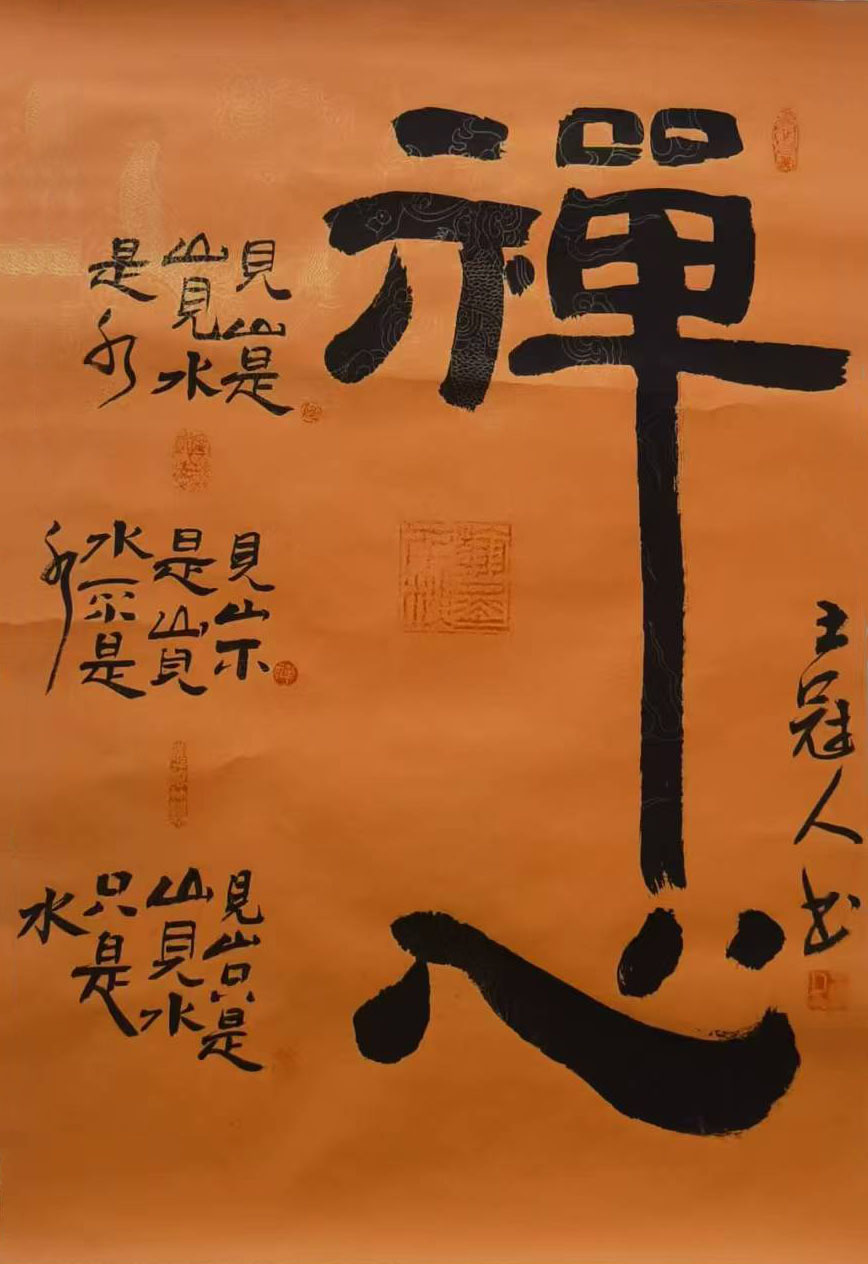 禪心
見山是
山見水
是水
見山不
是山見
水不是
水
見山只是
山見水
只是
水
王冠人书